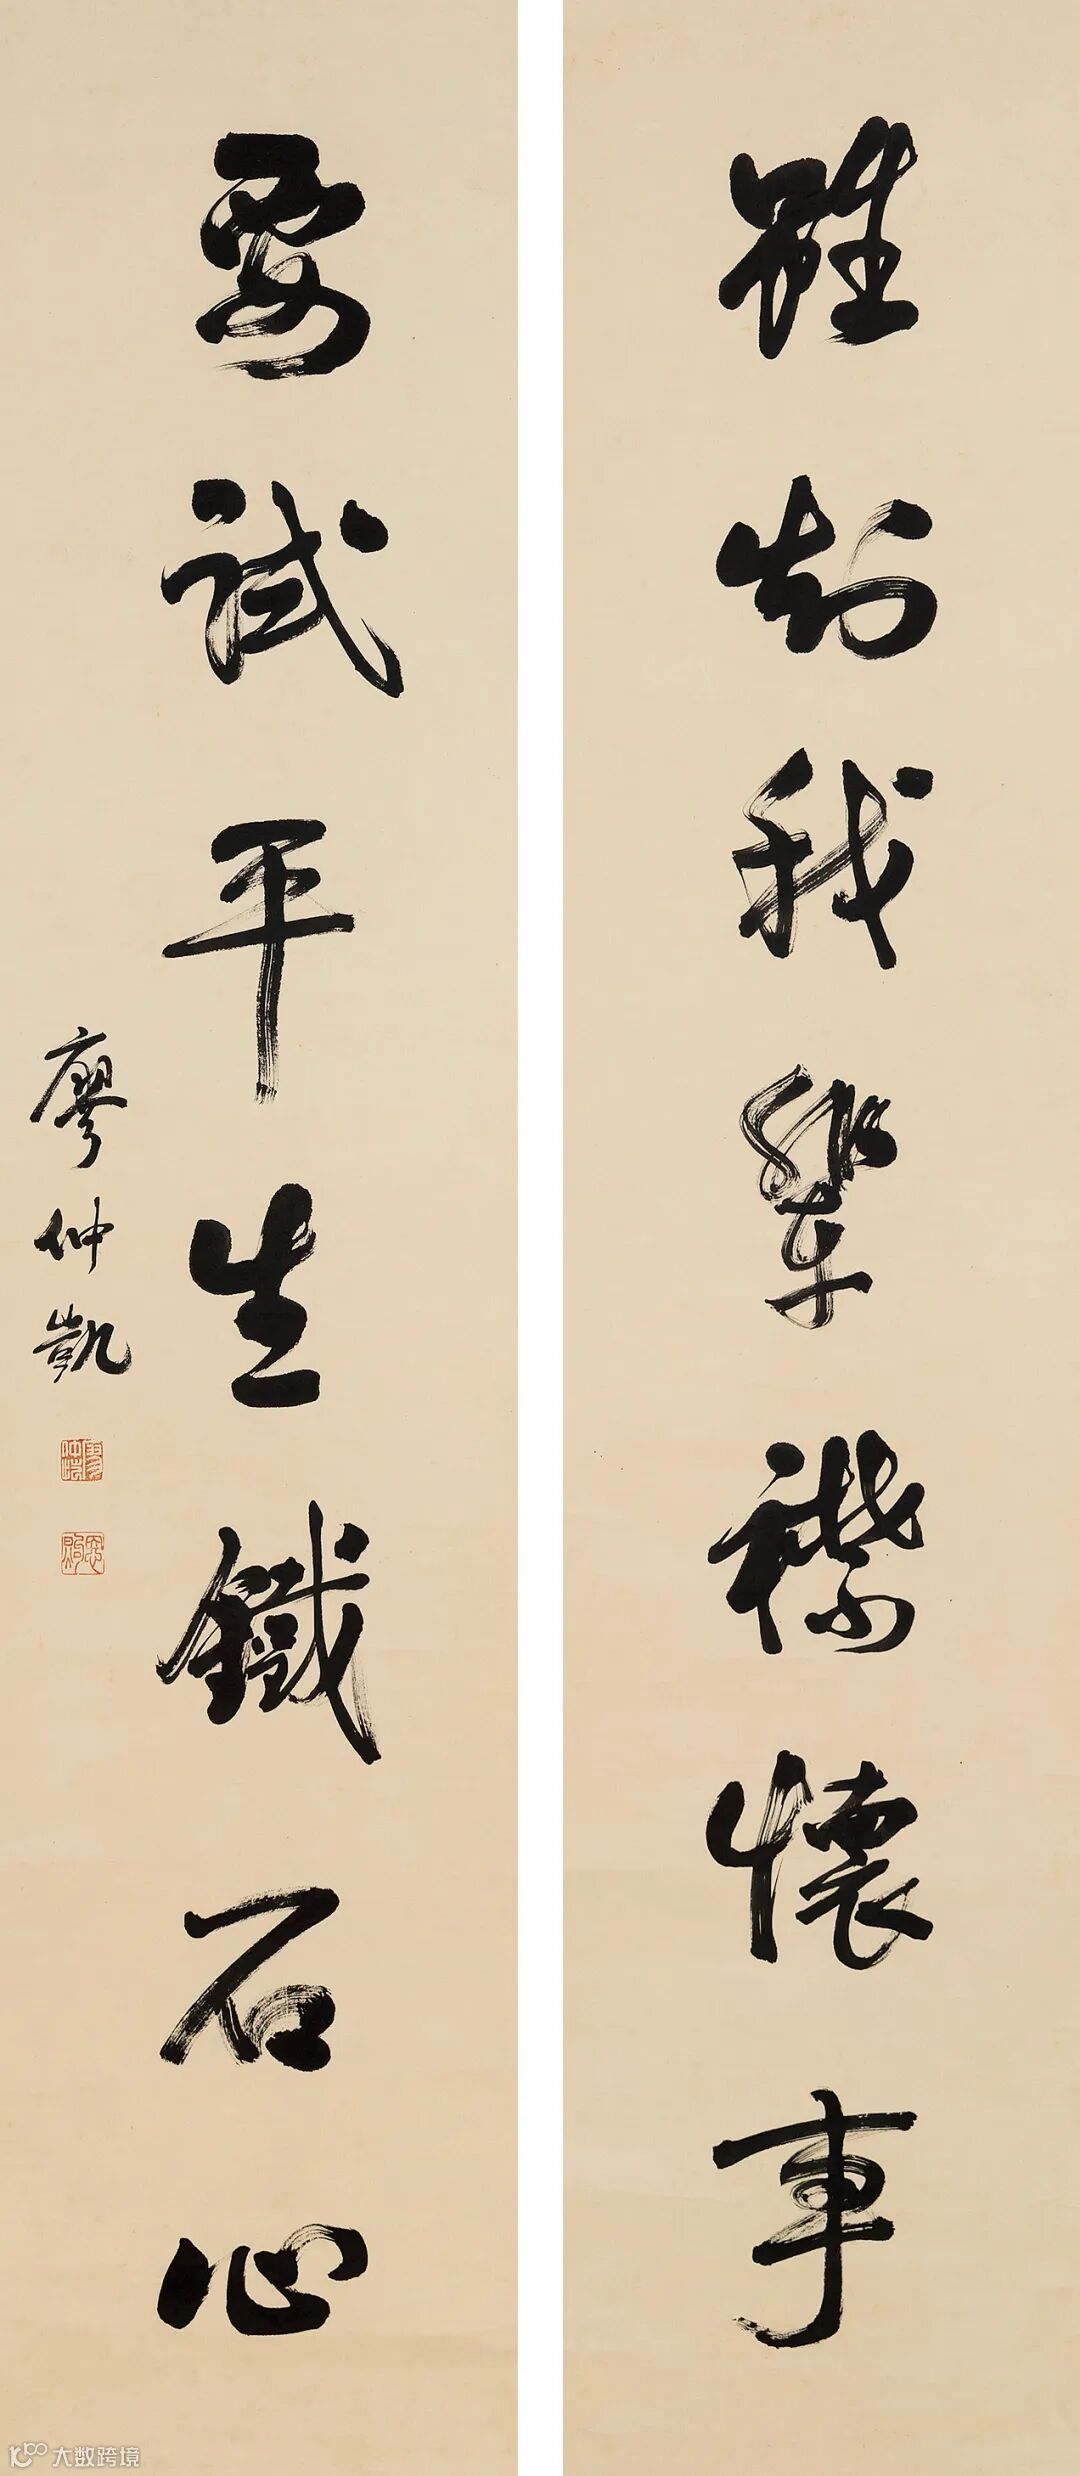 雖我輩襟懷事
要試平生鐵石心
廖仲凱
大数跨境